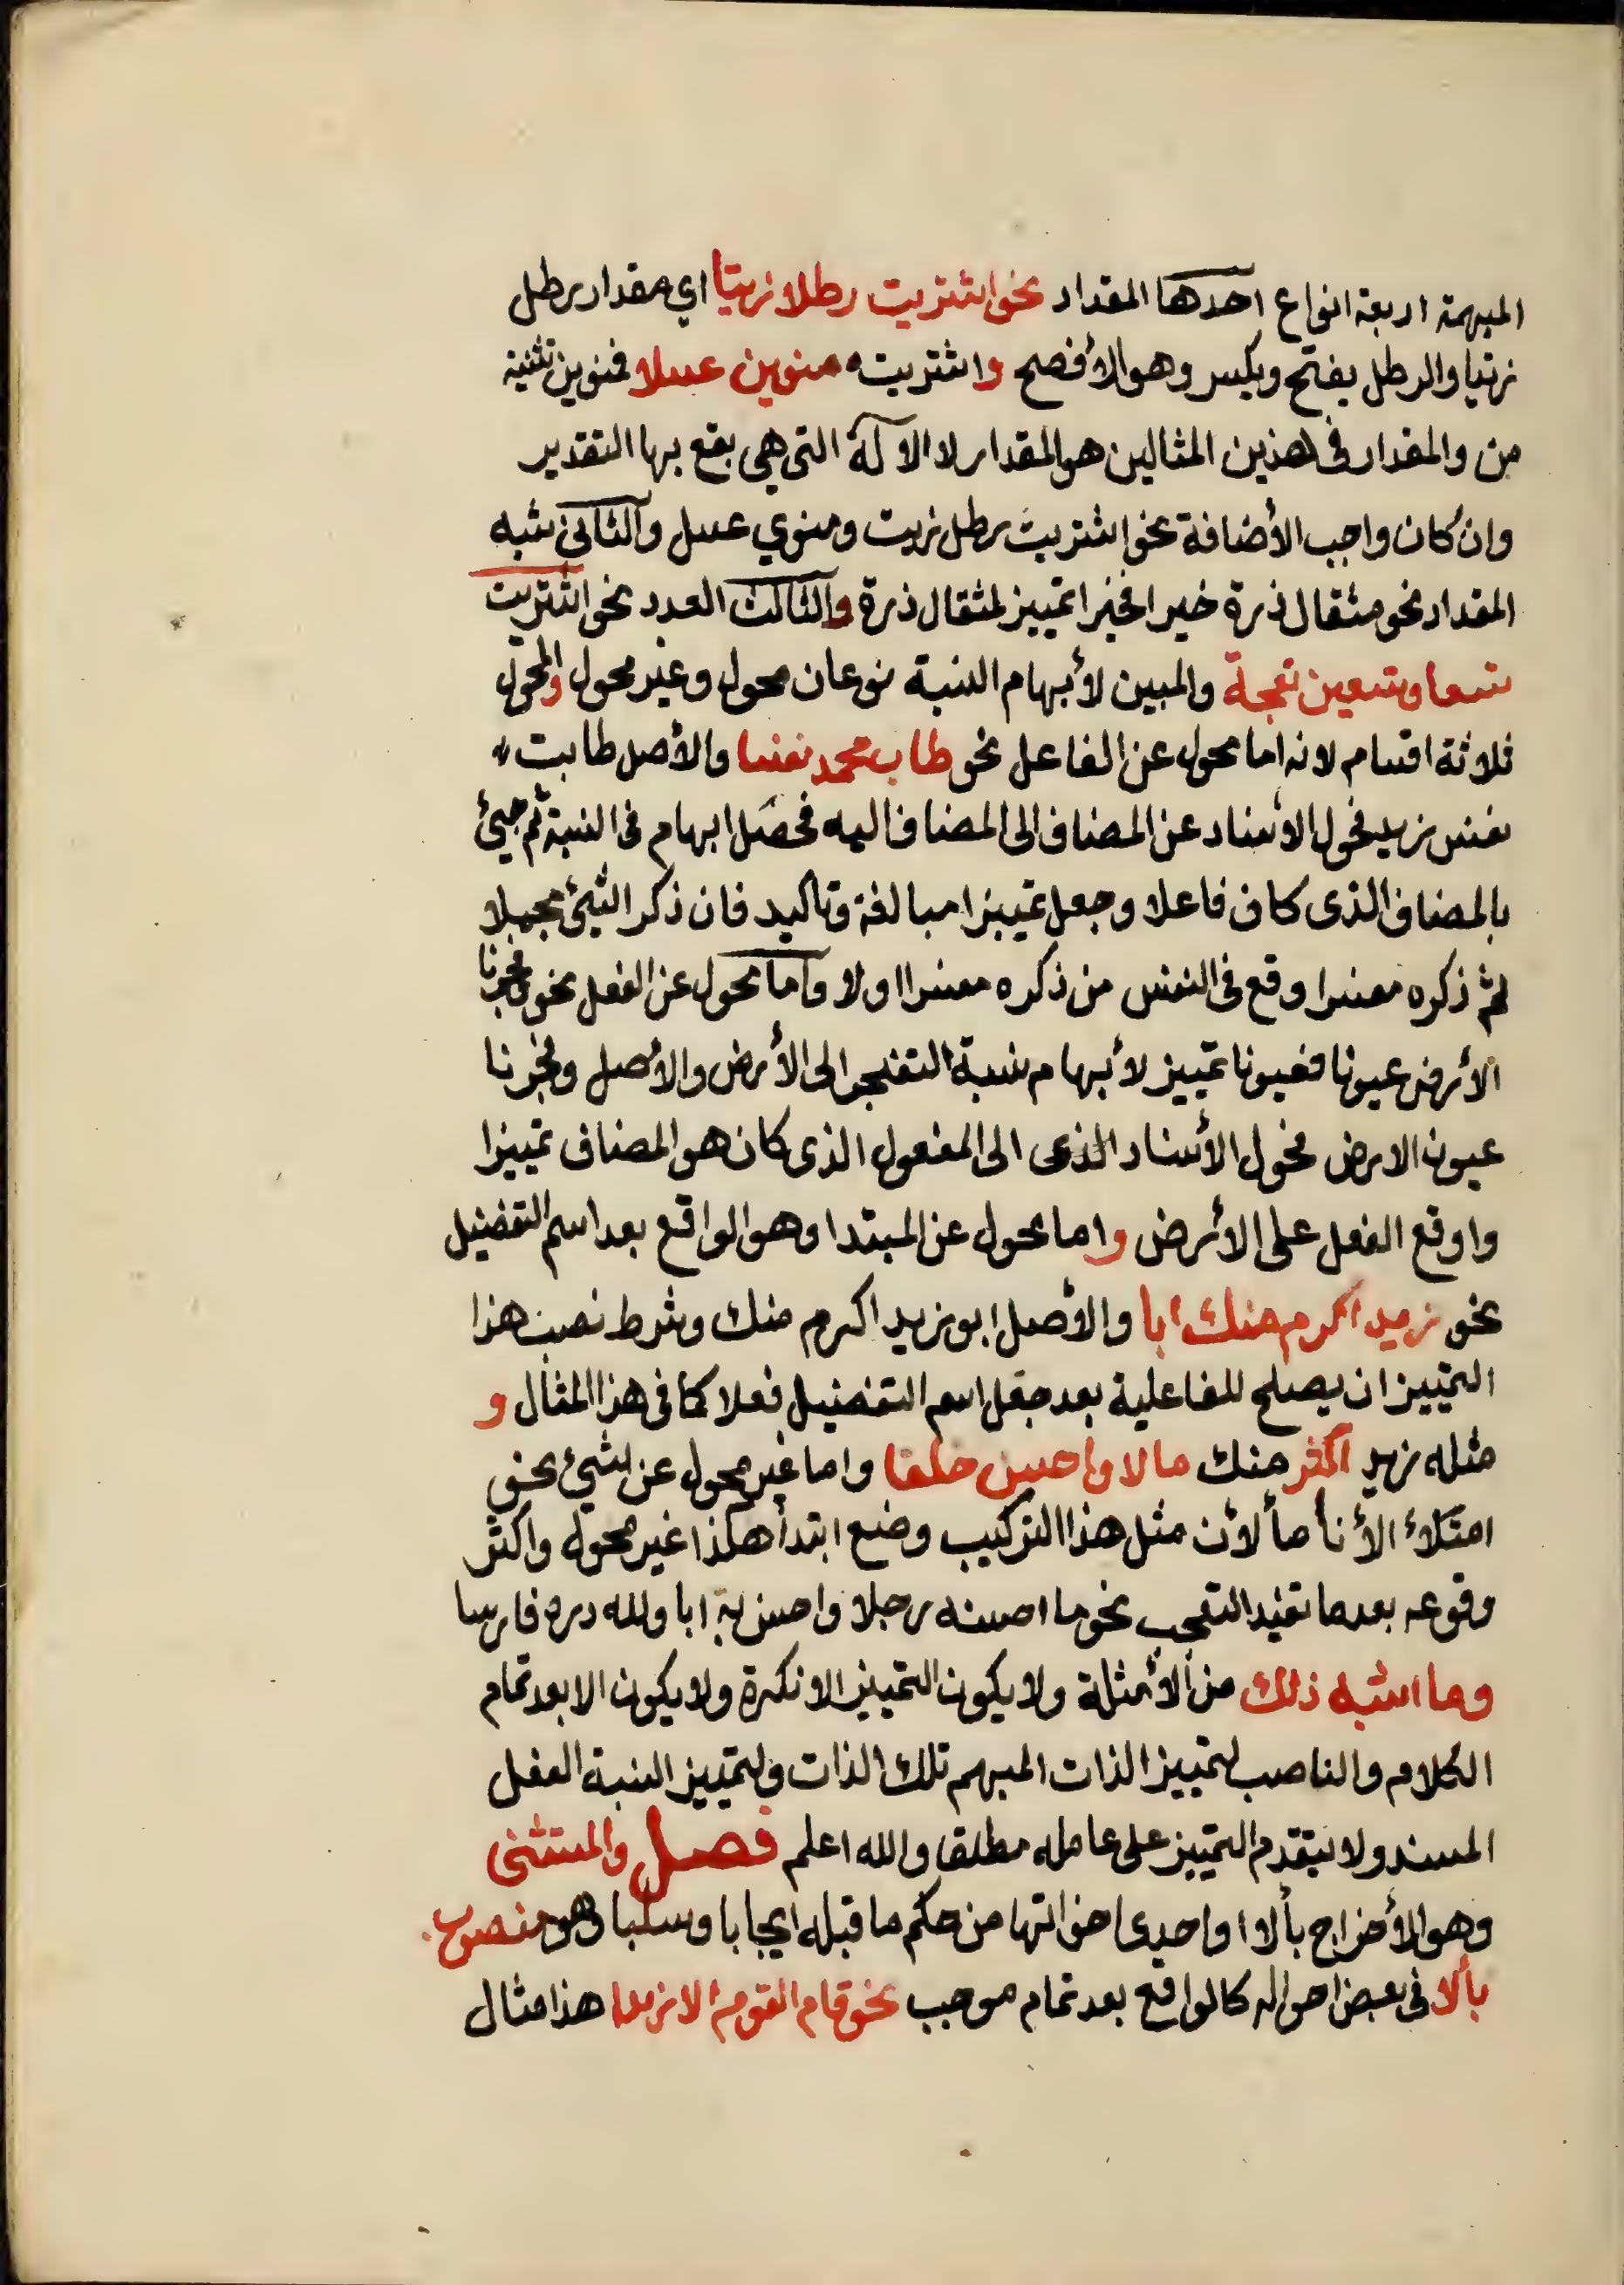 المبهمة اربعة انواع احدها المقدار نحو اشتريت رطلا زيتا اي مقدار رطل
زيتا والرطل يفتح ويكسر وهو الأفصح واشتريت منوين عسلا فمنوين تثنية
من والمقدار في هذين المثالين هو المقدار لا الآلة التي هي يقع بها التقدير
وان كان واجب الأضافة نحو اشتريت رطل زيت ومنوي عسل والثاني شبه
المقدار نحو مثقال ذرة خيرا فخيرا تمييز لمثقال ذرة والثالث العدد نحو اشتريت
تسعا وتسعين نعجة والمبين لأبهام النسبة نوعان محول وغير محول والمحول
ثلاثة اقسام لانه اما محول عن الفاعل نحو طاب محمد نفسا والأصل طابت
نفس زيد فحول الأسناد عن المضاف الى المضاف اليه فحصل ابهام في النسبة ثم جيئ
بالمضاف الذى كان فاعلا وجعل تمييزا مبالغة وتاكيد فان ذكر الشيئ مجملا
ثم ذكره مفسرا وقع في النفس من ذكره مفسرا اولا واما محول عن الفعل نحو وفجرنا
الأرض عيونا فعيونا تمييز لأبهام نسبة التفجير الى الأرض والأصل وفجرنا
عيون الارض فحول الأسناد الذى الى المفعول الذى كان هو المضاف تمييزا
واوقع الفعل على الأرض واما محول عن المبتدا وهو الواقع بعد اسم التفضيل
نحو زيد اكرم منك ابا والأصل ابو زيد اكرم منك وشرط نصب هذا
التمييز ان يصلح للفاعلية بعد جعل اسم التفضيل فعلا كما في هذا المثال و
مثله زيد اكثر منك مالا واحسن خلقا واما غير محول عن شيئ نحو
امتلأ الأنا مأ لأن مثل هذا التركيب وضع ابتدأ هكذا غير محول واكثر
وقوعه بعد ما يفيد التعجب نحو ما احسنه رجلا واحسن به ابا ولله دره فارسا
وما اشبه ذلك من الأمثلة ولا يكون التمييز الا نكرة ولا يكون الا بعد تمام
الكلام والناصب لتمييز الذات المبهم تلك الذات ولتمييز النسبة الفعل
المسند ولا يتقدم التمييز على عامله مطلقا والله اعلم فصل والمستثنى
وهو الأخراج بألا او احدى اخواتها من حكم ما قبله ايجابا وسلبا وهو منصوب
بألا في بعض احواله كالواقع بعد تمام موجب نحو قام القوم الا زيدا هذا مثال